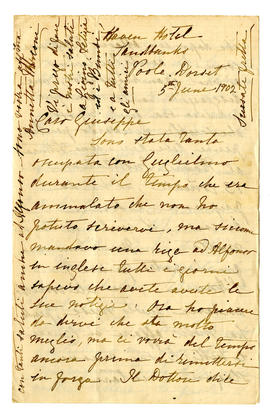 Haven Hotel
Sandbanks
Poole, Dorset
5th June 1902
Caro Giuseppe
Sono stata tanto
occupata con Guglielmo
durante il tempo che era
ammalato che non ho
potuto scrivervi, ma siccome
mandavo una riga ad Alfonso
in inglese tutti i giorni
sapevo che avete avuto le
sue notizie. Ora ho piacere
da dirvi che sta molto
meglio, ma ci vorrà del tempo
ancora prima di rimettersi
in forza. Il Dottore dice
con tanti saluti anche ad Alfonso sono vostra
Annetta Marconi
Vi prego di
i miei saluti
e a tutti
gli amici
Scusate